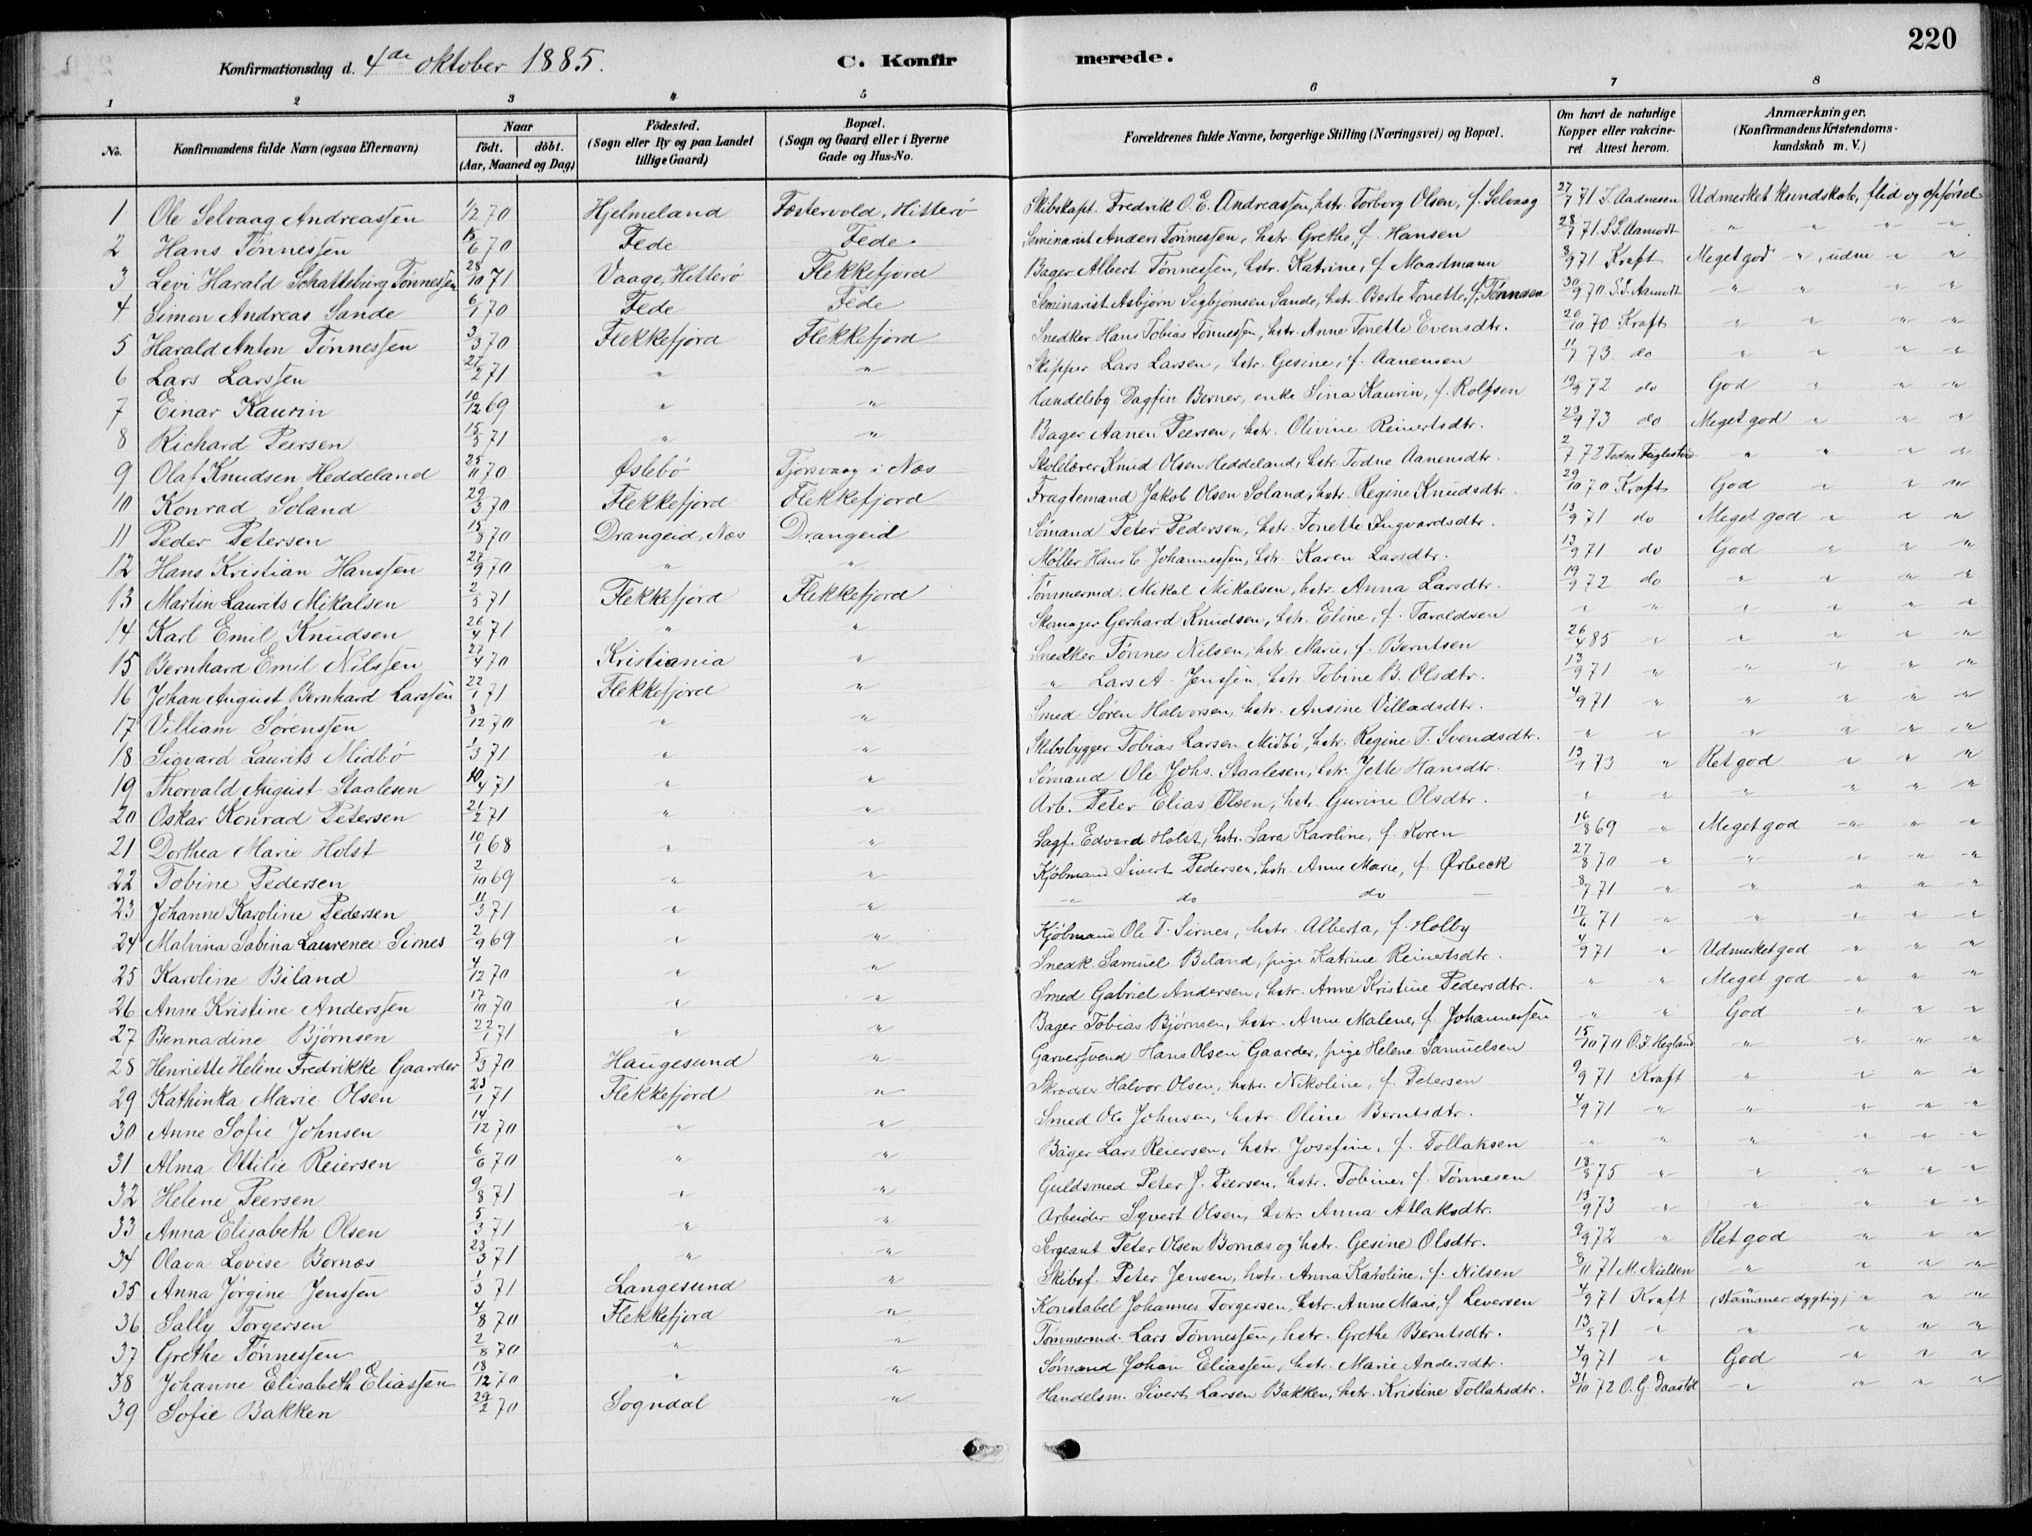 220
Konfirmationsdag d. 4de oktober 1885. C. Konfir merede.
1 2 3 4 5 6 7 8
No. Konfirmandens fulde Navn (ogsaa Efternavn) Naar født. døbt. (Aar, Maaned og Dag) Fødested. (Sogn eller By og paa Landet tillige Gaard) Bopæl. (Sogn og Gaard eller i Byerne Gade og Hus-No. Forældrenes fulde Navne, borgerlige Stilling (Næringsvei) og Bopæl. Om havt de naturlige Kopper eller vakcineret. Attest herom. Anmærkninger. (Konfirmandens Kristendomskundskab m. V.)
1 Ole Selvaag Andreassen 1/2 70 Hjelmeland Fostervold, Hitterø Skibskapt. Fredrik O. E. Andreassen, hstr. Torborg Olsen, f. Selvaag 27/7 71 S. Aadnesen Udmerket kundskab, flid og opførsel
2 Hans Tønnessen 18/6 70 Fede Fede Seminarist Anders Tønnessen, hstr. Grethe, f. Hansen 28/7 71 S. S. Aamodt " " " "
3 Levi Harald Schatteburg Tønnessen 28/10 71 Vaage, Hitterø Flekkefjord Bager Albert Tønnessen, hstr. Katrine, f. Maartmann 8/9 71 Kraft Meget god " , udm " "
4 Simon Andreas Sande 6/1 70 Fede Fede Seminarist Asbjørn Sigbjørnsen Sande, hstr. Berte Tonette, f. Tønnesen 30/9 70 S. S. Aamodt " " " "
5 Harald Anton Tønnessen 3/3 70 Flekkefjord Flekkefjord Snedker Hans Tobias Tønnessen, hstr. Anne Tonette Evensdtr. 20/10 70 Kraft " " " "
6 Lars Larssen 27/2 71 " " Skipper Lars Larsen, hstr. Gesine, f. Aanensen 11/7 73 do " " " "
7 Einar Kaurin 10/12 69 " " Handelsbg. Dagfin Berner, enke Sina Kaurin, f. Rolfsen 19/9 72 do God " " "
8 Richard Peersen 15/3 71 " " Bager Aanen Peersen, hstr. Olivine Reinertsdtr. 23/9 73 do Meget god " " "
9 Olaf Knudsen Heddeland 25/11 70 Øslebø Tjørsvaag i Næs Skolelærer Knud Olsen Heddeland, hstr. Todne Aanensdtr. 2/7 72 " " " "
10 Konrad Soland 29/3 70 Flekkefjord Flekkefjord Fragtemand Jakob Olsen Soland, hstr. Regine Knudsdtr. 29/10 70 Kraft God " " "
11 Peder Petersen 15/8 70 Drangeid, Næs Drangeid Sømand Peter Pedersen, hstr. Tonette Ingvardsdtr. 13/9 71 do Meget god " " "
12 Hans Kristian Hanssen 27/9 70 " " Møller Hans C Johannessen, hstr. Karen Larsdtr. 13/9 71 do God " " "
13 Martin Laurits Mikalsen 2/3 71 Flekkefjord Flekkefjord Tømmermd. Mikal Mikalsen, hstr. Anna Larsdtr. 19/9 72 do " " " "
14 Karl Emil Knudsen 26/4 71 " " Skomager Gerhard Knudsen, hstr. Eline, f. Taraldsen " " " " " "
15 Bernhard Emil Nilssen 27/4 70 Kristiania " Snedker Tønnes Nilsen, hstr. Marie, f. Berntsen 26/4 85 " " " " "
16 Johan August Bernhard Larssen 22/1 71 Flekkefjord " " Lars A. Jenssen, hstr. Tobine B. Olsdtr. 13/9 71 " " " " "
17 Villiam Sørenssen 8/12 70 " " Smed Søren Halvorsen, hstr. Ansine Villadsdtr. 4/9 71 " " " " "
18 Sigvard Laurits Midbø 1/3 71 " " Skibsbygger Tobias Larsen Midbø, hstr. Regine T. Svendsdtr. " " " " " "
19 Thorvald August Staalesen 10/4 71 " " Sømand Ole Johs. Staalesen, hstr. Jette Hansdtr. 13/9 73 " Ret god " " "
20 Oskar Konrad Petersen 21/2 71 " " Arb. Peter Elias Olsen, hstr. Gurine Olsdtr. " " " " " "
21 Dorthea Marie Holst 10/1 68 " " Sagf. Edvard Holst, hstr. Sara Karoline, f. Koren 16/8 69 " Meget god " " "
22 Tobine Pedersen 2/10 69 " " Kjøbmand Sivert Pedersen, hstr. Anne Marie, f. Ørbeck 27/8 70 " " " " "
23 Johanne Karoline Pedersen 11/3 71 " " " do do 8/7 71 " " " " "
24 Malvina Sabina Laurence Sirnes 2/9 69 " " Kjøbmand Ole T. Sirnes, hstr. Alberta, f. Holby 17/6 71 " " " " "
25 Karoline Biland 4/12 70 " " Snedk. Samuel Biland, pige Katrine Reinertsdtr. 4/9 71 " Udmerket god " " "
26 Anne Kristine Anderssen 17/10 70 " " Smed Gabriel Andersen, hstr. Anne Kristine Pedersdtr. " " Meget god " " "
27 Bennadine Bjørnsen 22/1 71 " " Bager Tobias Bjørnsen, hstr. Anne Malene, f. Johannessen " " God " " "
28 Henriette Helene Fredrikke Gaarder 5/3 70 Haugesund " Garversvend Hans Olsen Gaarder, pige Helene Samuelsen 15/10 70 O. J. Hegland " " " "
29 Kathinka Marie Olsen 23/1 71 Flekkefjord " Skrædder Halvor Olsen, hstr. Nikoline, f. Petersen 9/9 71 Kraft " " " "
30 Anne Sofie Johnsen 14/12 70 " " Smed Ole Johnsen, hstr. Oline Berntsdtr. 4/9 71 " " " " "
31 Alma Ottilie Reiersen 6/6 70 " " Bager Lars Reiersen, hstr. Josefine, f. Tollaksen " " " " " "
32 Helene Peersen 9/8 71 " " Guldsmed Peter J. Peersen, hstr. Tobine, f. Tønnesen 18/8 75 " " " " "
33 Anna Elisabeth Olsen 5/3 71 " " Arbeider Syvert Olsen, hstr. Anna Atlaksdtr. 13/9 73 " " " " "
34 Olava Lovise Bornæs 23/3 71 " " Sergeant Peter Olsen Bornæs og hstr. Gesine Olsdtr. 9/9 72 " Ret god " " "
35 Anna Jørgine Jenssen 1/3 71 Langesund " Skibsf. Peter Jensen, hstr. Anna Karoline, f. Nilsen 8/11 71 M. Nielsen " " " "
36 Sally Torgersen 4/8 70 Flekkefjord " Konstabel Johannes Torgersen, hstr. Anne Marie, f Leversen 4/9 71 Kraft (stammer dygtig) " " "
37 Grethe Tønnessen 2/8 70 " " Tømmermd. Lars Tønnessen, hstr. Grethe Berntsdtr. 13/5 71 " " " " "
38 Johanne Elisabeth Eliassen 18/12 70 " " Sømand Johan Eliassen, hstr. Marie Andersdtr. 4/9 71 " God " " "
39 Sofie Bakken 29/2 70 Sogndal " Handelsm. Sivert Larsen Bakken, hstr. Kristine Tollaksdtr. 31/10 72 O. G. " " " "